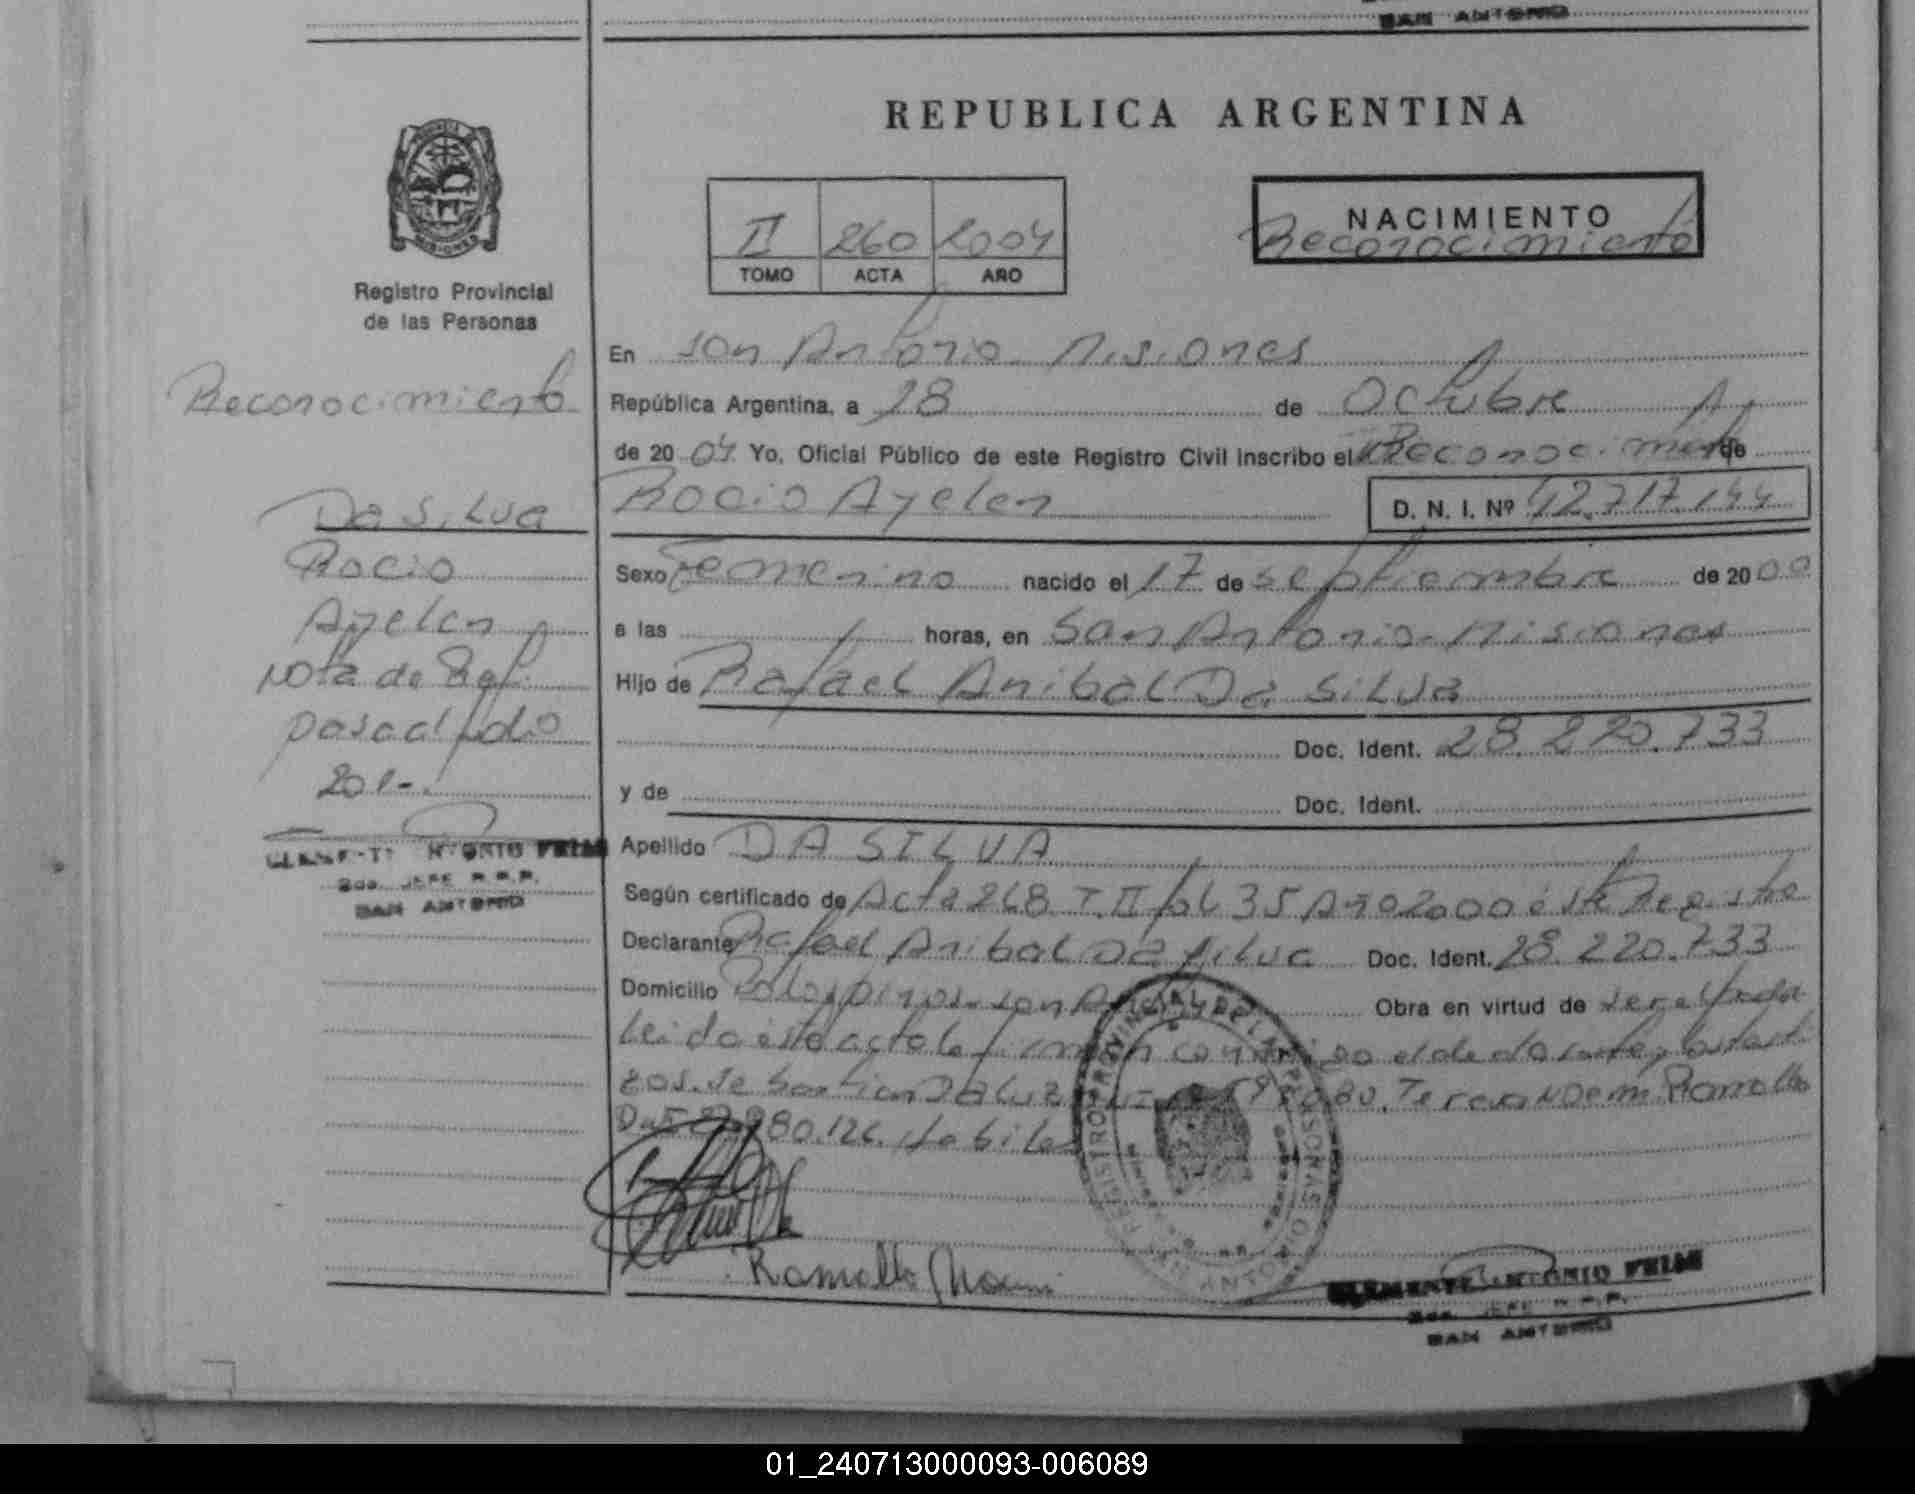 SAN ANTONIO
REPUBLICA ARGENTINA
II 260 2004
TOMO ACTA AÑO
NACIMIENTO
Reconocimiento
Registro Provincial
de las Personas
Reconocimiento
Da Silva
Rocio
Ayelen
Nota de Ref.
En San Antonio Misiones
República Argentina, a 28 de Octubre
de 2004 Yo, Oficial Público de este Registro Civil inscribo el Reconocimiento de
Rocio Ayelen D. N. I. Nº 42.717.144
Sexo Femenino nacido el 17 de septiembre de 2000
a las horas, en San Antonio-Misiones
Hijo de Rafael Anibal Da Silva
Doc. Ident. 28.220.733
y de Doc. Ident.
Apellido DA SILVA
Según certificado de Acta 268 T. II fol 35 Año 2000 éste Registro
Declarante Rafael Anibal Da Silva Doc. Ident. 28.220.733
Domicilio San Obra en virtud de ser el padre
Leida éste acta la firman conmigo el declarante y los testi
gos. Sebastian Da Luz Noemi Ramallo
REGISTRO PROVINCIAL DE LAS PERSONAS
SAN ANTONIO
Ramallo Noemi
CLEMENTE ANTONIO
JEFE R.P.P.
SAN ANTONIO
CLEMENTE ANTONIO
JEFE R.P.P.
SAN ANTONIO
01_240713000093-006089